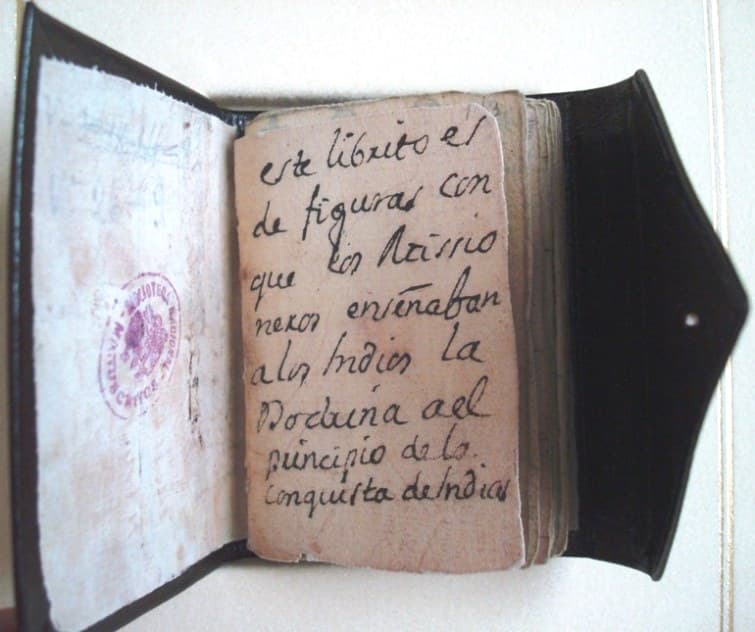 este librito es
de figuras con
que los Missio
neros enseñaban
a los Indios la
Doctrina a el
principio de la
conquista de Indias
BIBLIOTECA NACIONAL
MANUSCRITOS